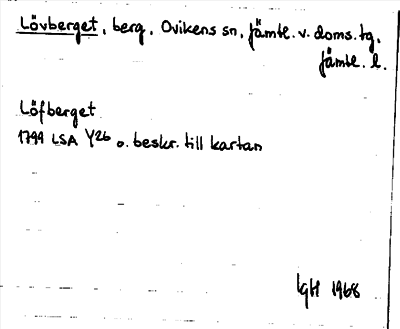 Lövberget, berg, Ovikens sn, Jämtl. v. doms. tg,
Jämtl. l.
Löfberget
1799 LSA Y26 o. beskr. till kartan
IgH 1968